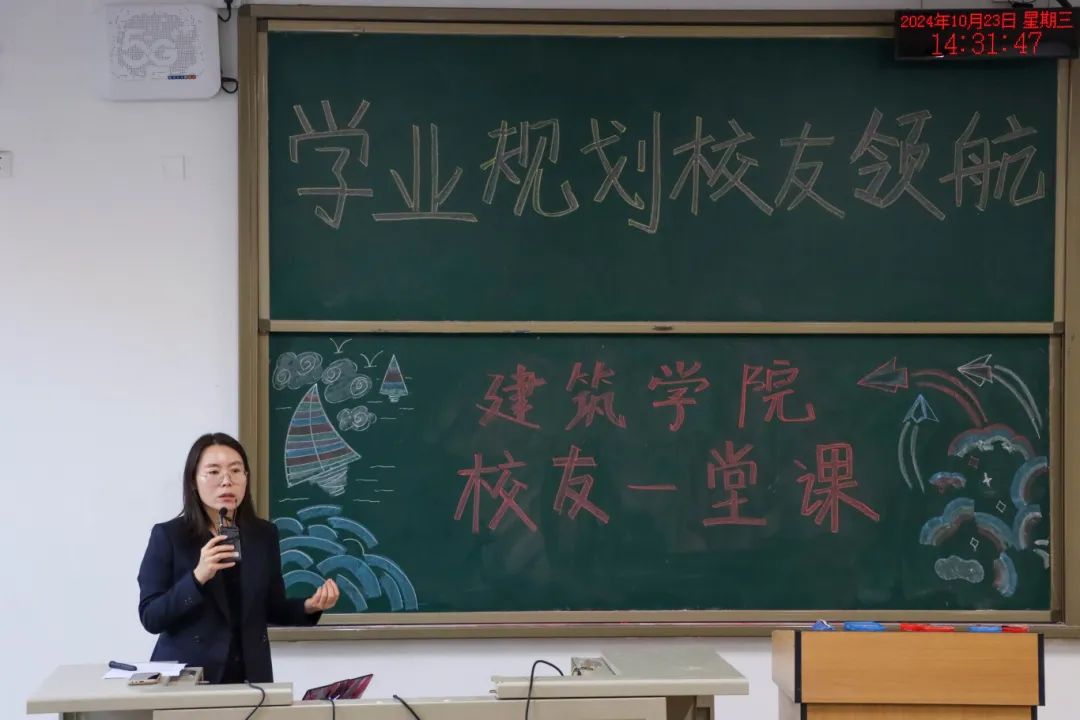 5G
2024年10月23日 星期三
14:31:47
学业规划校友领航
建筑学院
校友一堂课